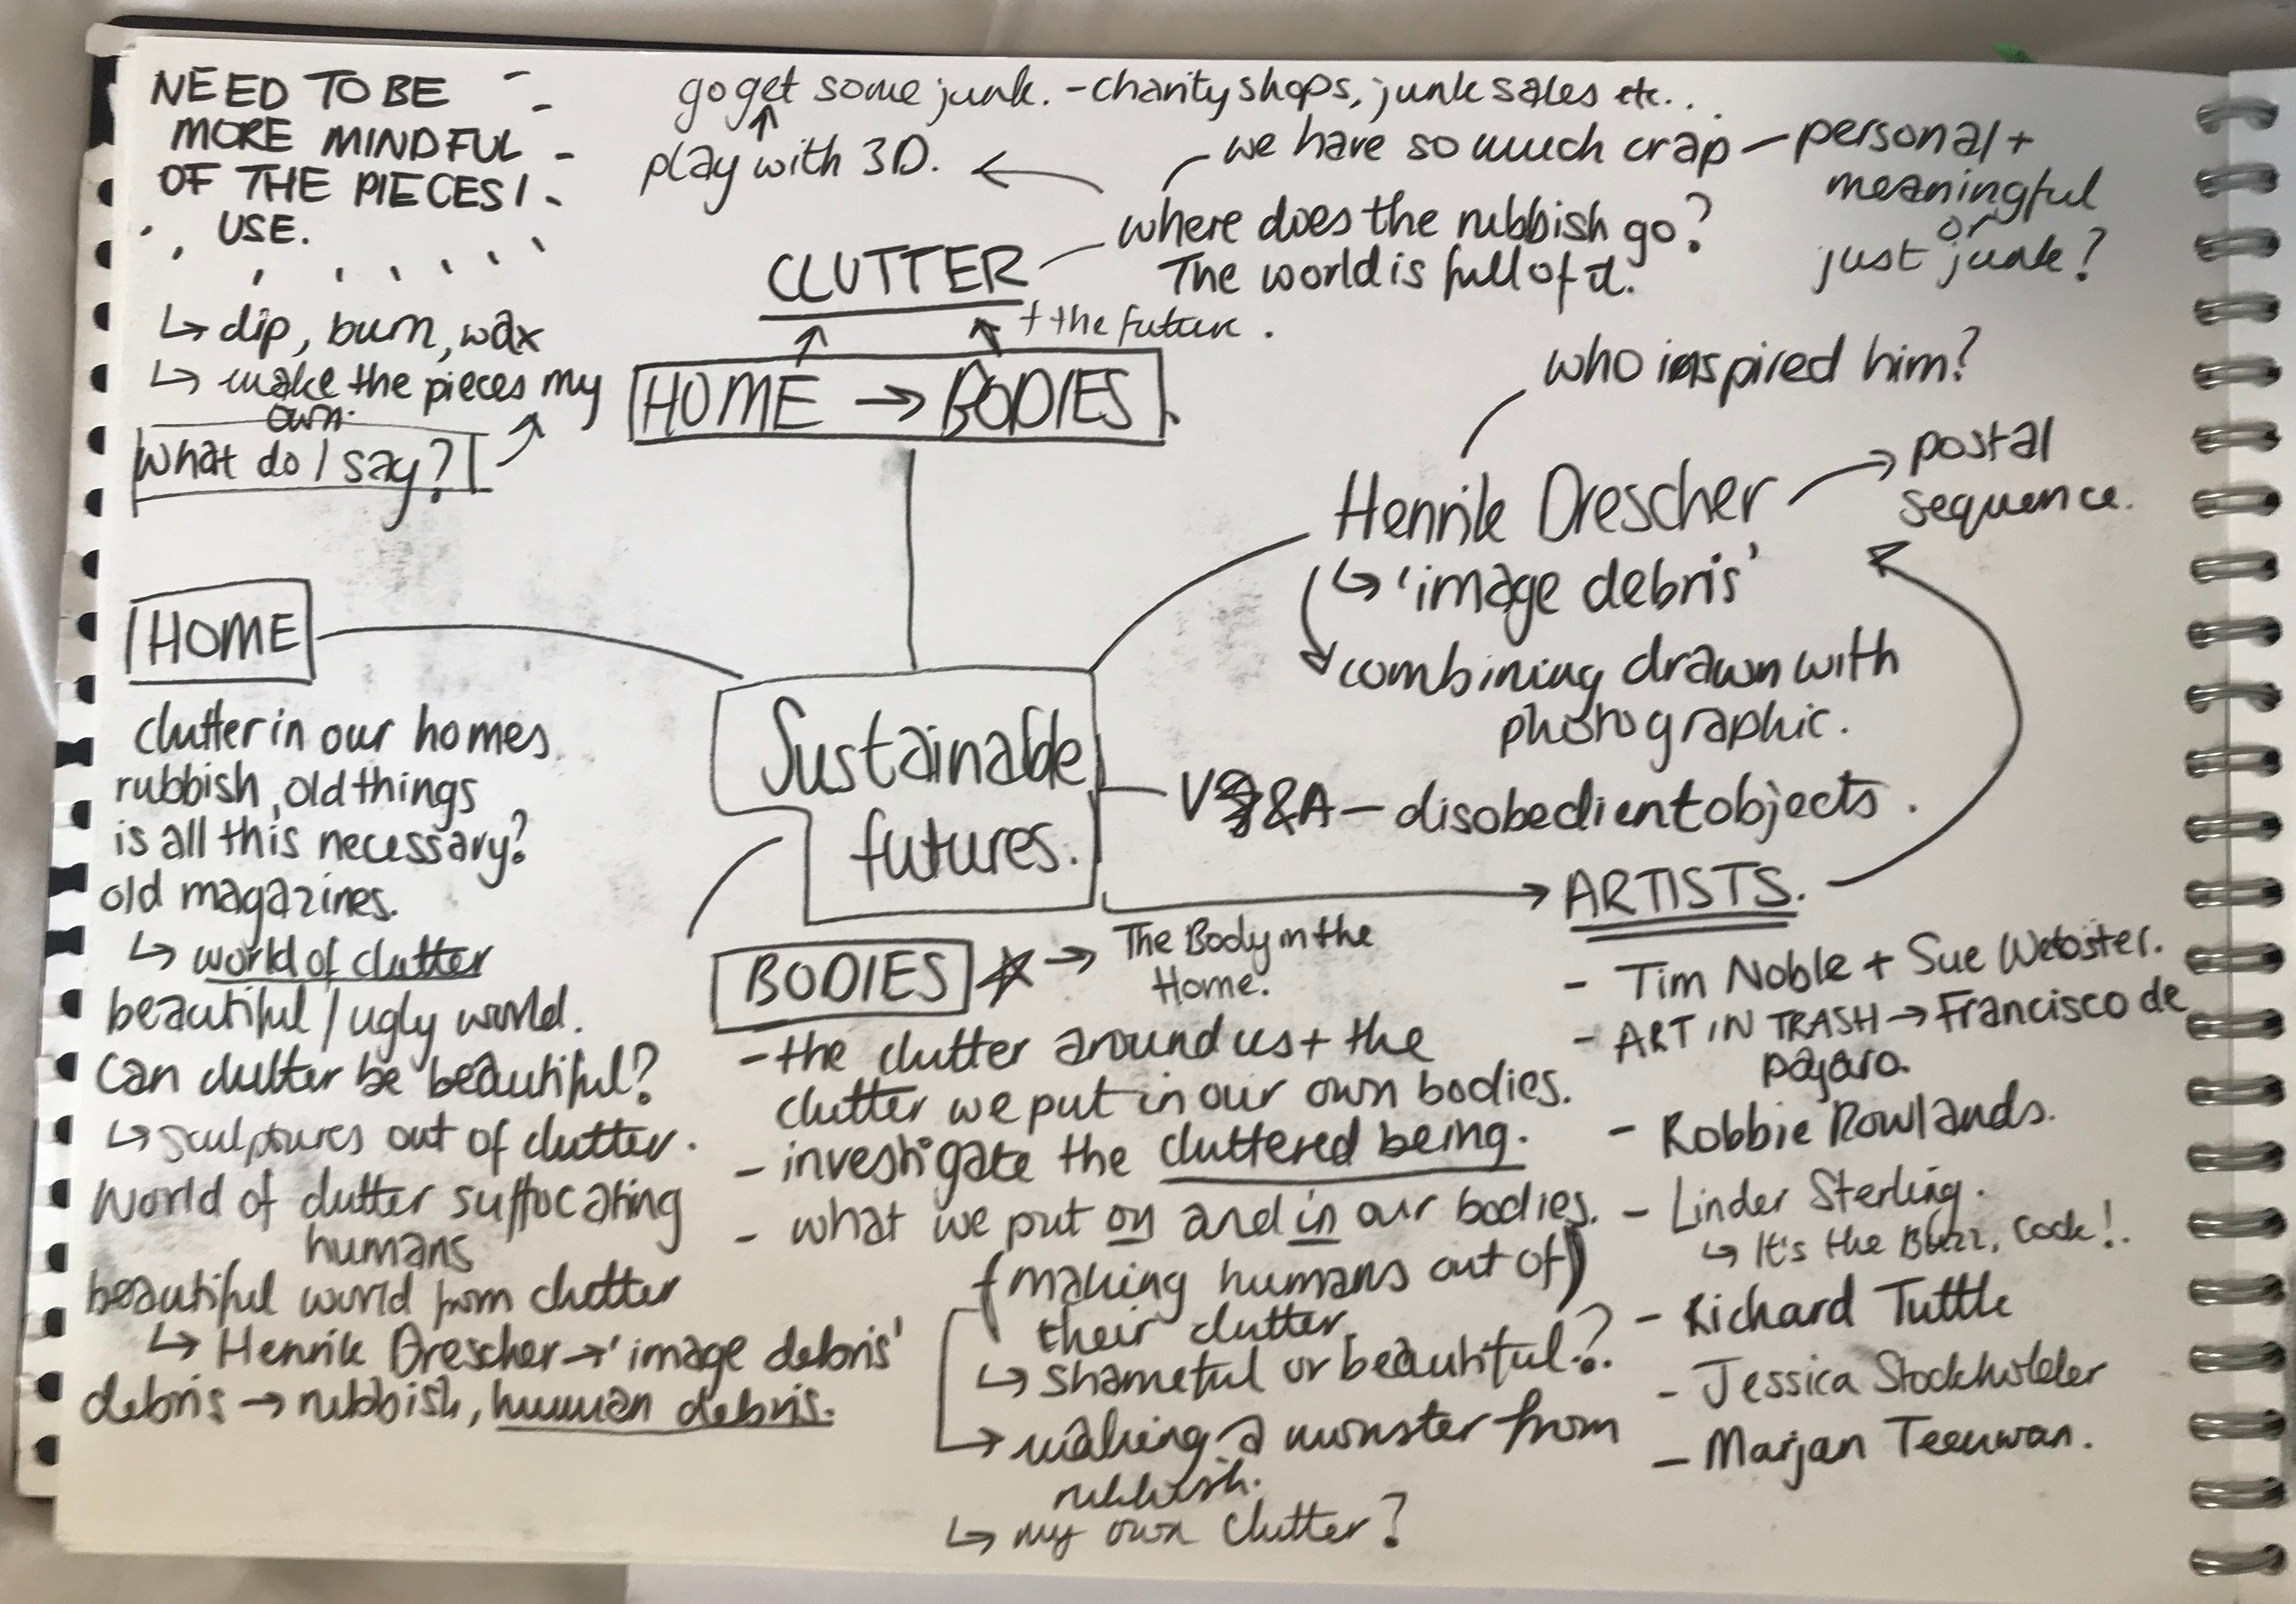 NEED TO BE
MORE MINDFUL
OF THE PIECES I
USE.
↳ dip, burn, wax
↳ make the pieces my
own.
What do I say?
go get some junk. - charity shops, junk sales etc..
play with 3D.
we have so much crap - personal +
meaningful
or
just junk?
where does the rubbish go?
The world is full of it.
CLUTTER
+ the future.
HOME → BODIES
who inspired him?
Henrik Drescher → postal
sequence.
↳ 'image debris'
combining drawn with
photographic.
HOME
clutter in our homes
rubbish, old things
is all this necessary?
old magazines.
↳ world of clutter
beautiful / ugly world.
Can clutter be beautiful?
↳ sculptures out of clutter.
World of clutter suffocating
humans
beautiful world from clutter
↳ Henrik Drescher → 'image debris'
debris → rubbish, human debris.
Sustainable
futures.
V&A - disobedient objects.
BODIES → The Body in the
Home.
- the clutter around us + the
clutter we put in our own bodies.
- investigate the cluttered being.
- what we put on and in our bodies.
(making humans out of)
their clutter
↳ shameful or beautiful?
→ making a monster from
rubbish.
↳ my own clutter?
ARTISTS.
- Tim Noble + Sue Webster.
- ART IN TRASH → Francisco de
pajaro.
- Robbie Rowlands.
- Linder Sterling.
↳ It's the Buzz, Cock!.
- Richard Tuttle
- Jessica Stockholder
- Marjan Teeuwan.